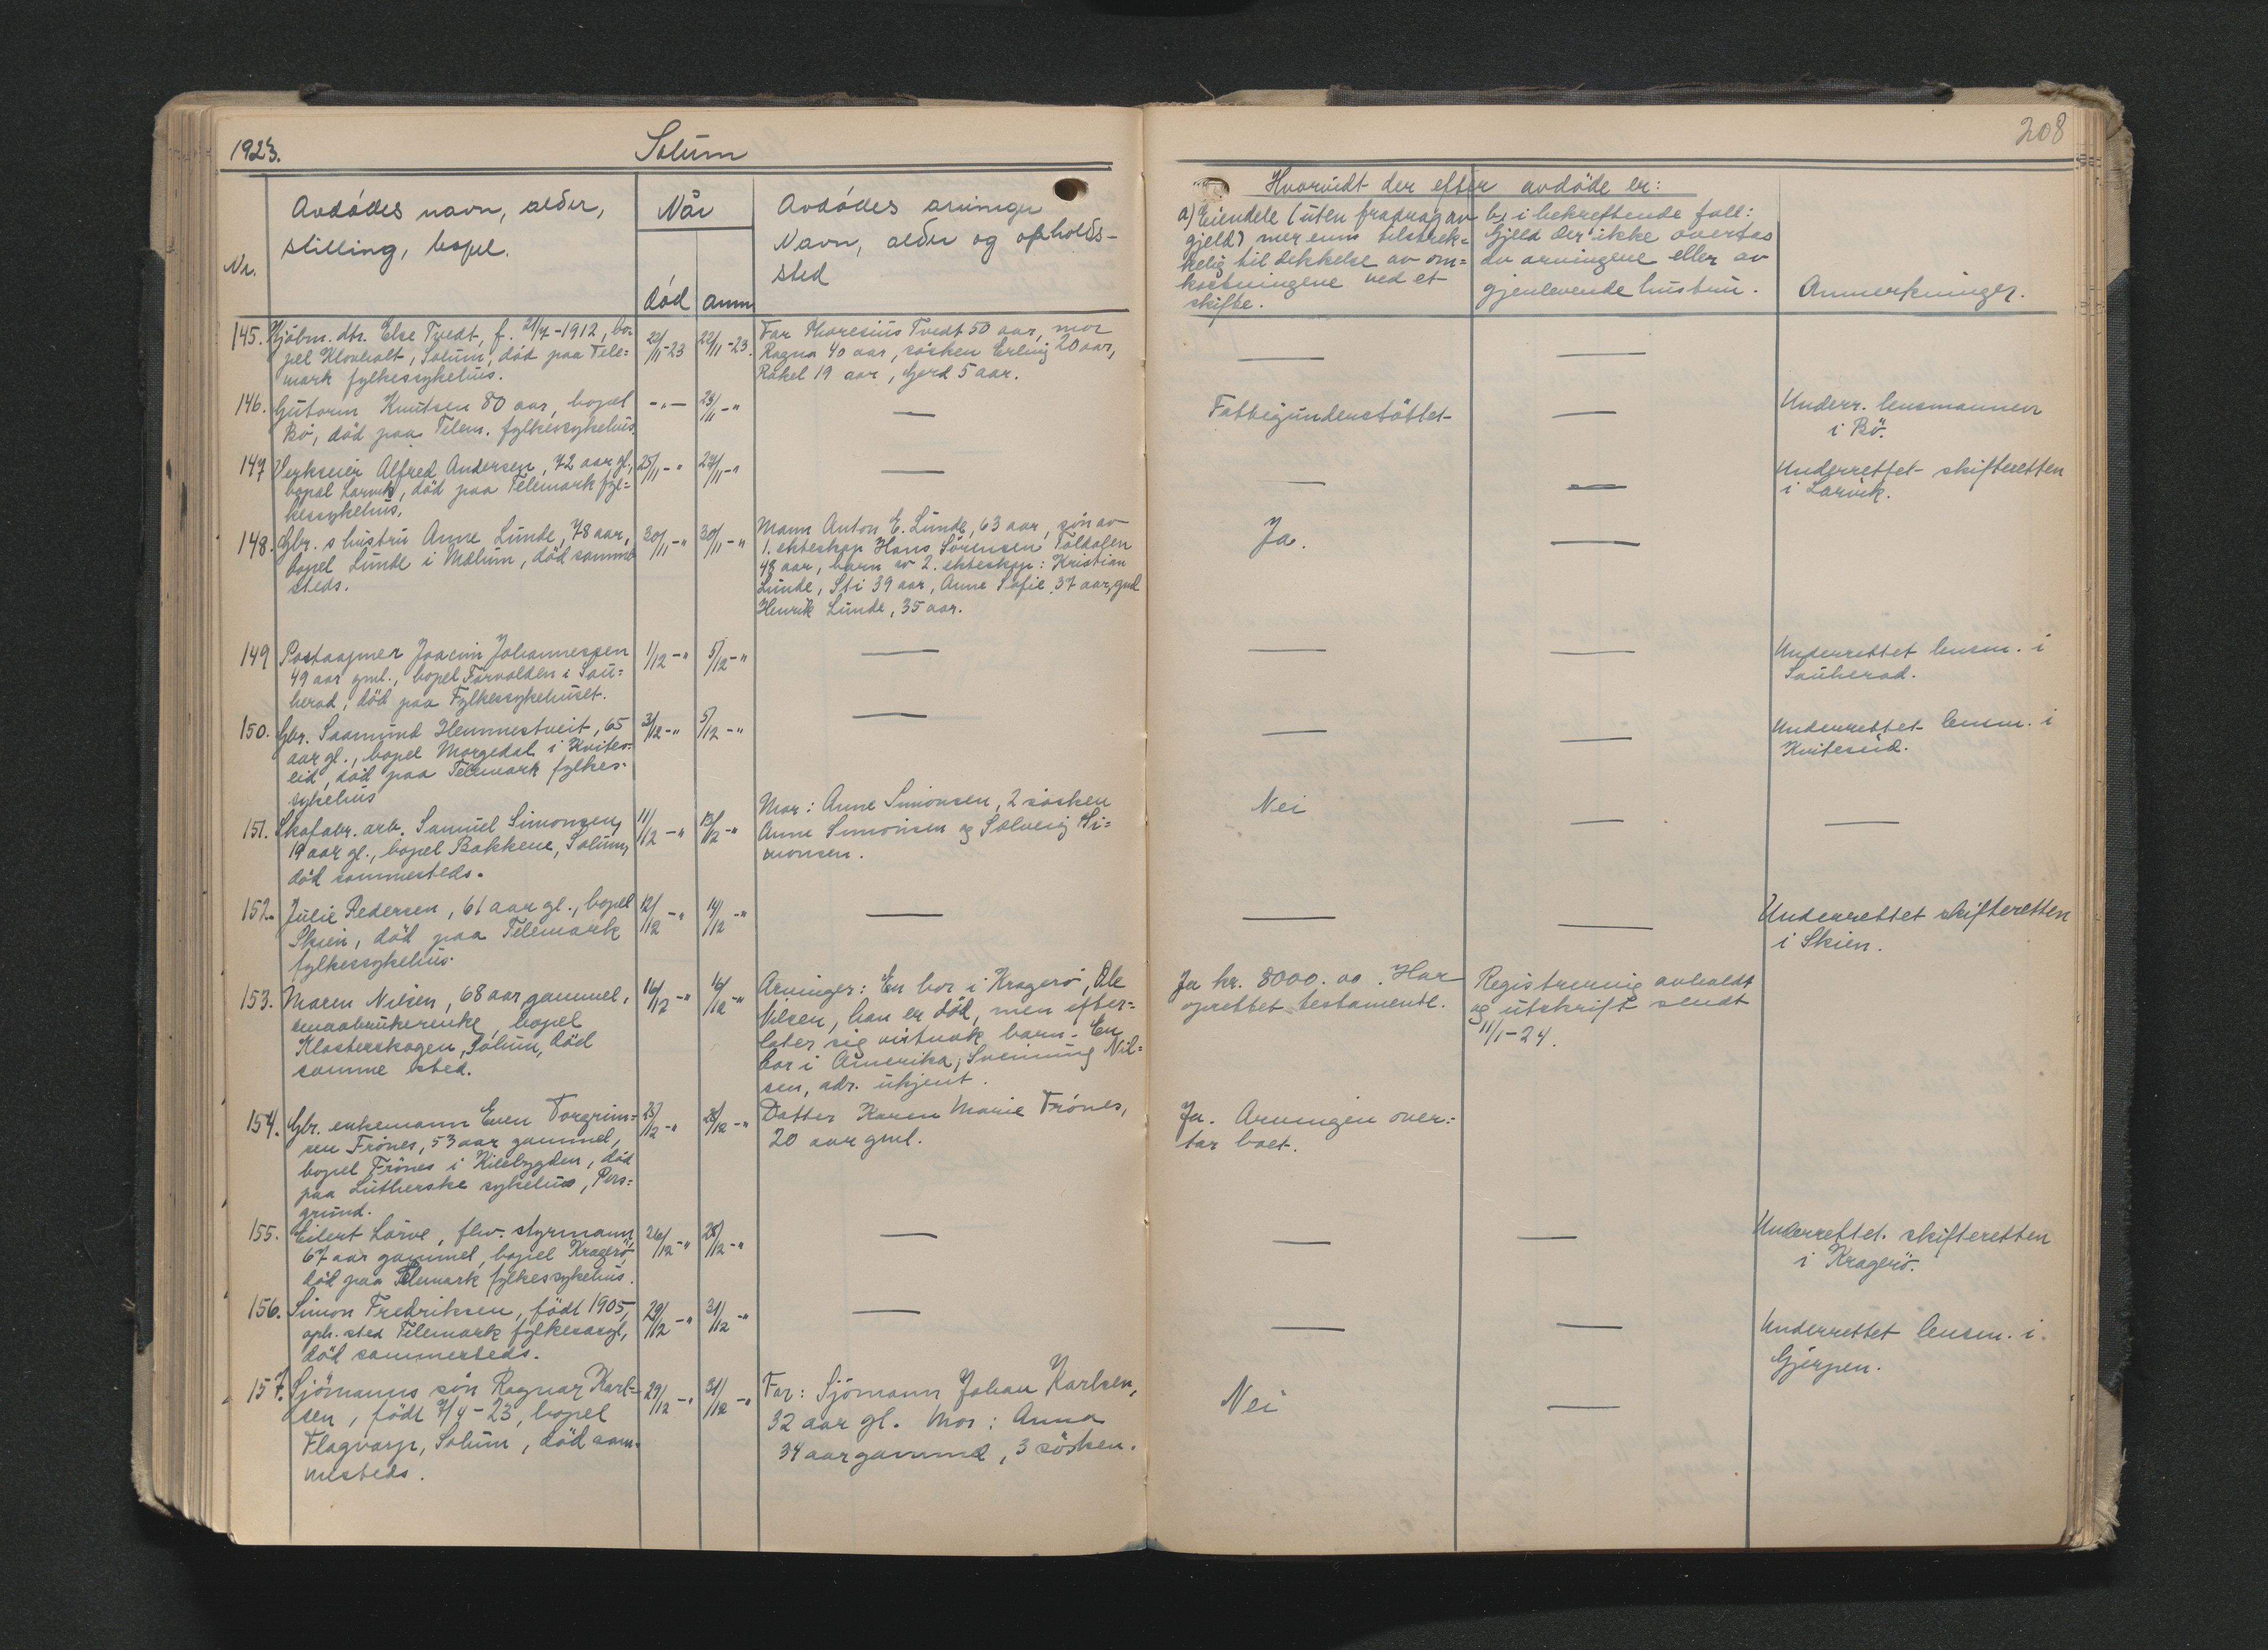 1923.
Solum
208
Nr.
Avdödes navn, alder,
stilling, bopel.
Når
död
anm
Avdödes arvinger
Navn, alder og opholds-
sted
Hvorvidt der efter avdöde er:
a) Eiendele (uten fradrag av
gjeld) mer enn tilstrek=
kelig til dekkelse av om=
kostningene ved et
skifte.
b, i bekreftende fall:
Gjeld der ikke overtas
av arvingene eller av
gjenlevende hustru.
Anmerkninger.
145. Kjöbm. dtr. Else Tvedt, f. 21/7-1912, bo-
pel Klovholt, Solum, död paa Tele=
mark fylkessykehus.
22/11-23
22/11-23.
Far Thoresius Tvedt 50 aar, mor
Ragna 40 aar, sösken Erling 20 aar,
Rakel 19 aar, Gerd 5 aar.
—
—
146. Gutorm Knutsen 80 aar, bopel
Bö, död paa Telem. fylkessykehus.
-"-
23/11-"
—
Fattigunderstöttet
—
Underr. lensmannen
i Bö.
147 Verkseier Alfred Andersen, 72 aar gl.,
bopel Larvik, död paa Telemark fyl=
kessykehus.
25/11-"
27/11-"
—
—
—
Underrettet skifteretten
i Larvik.
148. Gbr. s hustru Anne Lunde, 78 aar,
bopel Lunde i Mælum, död samme
steds.
30/11-"
30/11-"
Mann Anton E. Lunde, 63 aar, sön av
1. ekteskap Hans Sörensen Foldalen
48 aar, barn av 2. ekteskap: Kristian
Lunde, Sti 39 aar, Anne Sofie 37 aar, gml
Henrik Lunde, 35 aar.
Ja.
—
149 Postaapner Joacim Johannessen
49 aar gml., bopel Farvolden i Sau=
herad, död paa Fylkessykehuset.
1/12-"
5/12-"
—
—
—
Underrettet lensm. i
Sauherad.
150. Gbr. Saamund Hemmestveit, 65
aar gl., bopel Morgedal i Kvites-
eid, död paa Telemark fylkes-
sykehus
3/12-"
5/12-"
—
—
—
Underrettet lensm. i
Kviteseid.
151. Skofabr. arb. Samuel Simonsen,
19 aar gl., bopel Bakkene, Solum,
död sammesteds.
11/12-"
13/12-"
Mor: Anne Simonsen, 2 sösken
Anne Simonsen og Solveig Si=
monsen.
Nei
—
—
152. Julie Pedersen, 61 aar gl., bopel
Skien, död paa Telemark
fylkessykehus.
12/12-"
14/12-"
—
—
—
Underrettet skifteretten
i Skien.
153. Maren Nilsen, 68 aar gammel,
smaabrukerenke, bopel
Klosterskogen, Solum, död
samme sted.
16/12-"
16/12-"
Arvinger: En bor i Kragerö, Ole
Nilsen, han er död, men efter=
later sig vistnok barn. En
bor i Amerika, Sveinung Nil=
sen, adr. ukjent.
Ja kr. 8000.00. Har
oprettet testamente.
Registrering avholdt
og utskrift sendt
11/1-24.
154. Gbr. enkemann Even Torgrim=
sen Frönes, 53 aar gammel,
bopel Frönes i Kilebygden, död
paa Lutherske sykehus, Pors=
grund.
23/12-"
28/12-"
Datter Karen Marie Frönes,
20 aar gml.
Ja. Arvingen over=
tar boet.
155. Eilert Larve, fhv. styrmann,
67 aar gammel, bopel Kragerö,
död paa Telemark fylkessykehus.
26/12-"
28/12-"
—
—
—
Underrettet. skifteretten
i Kragerö.
156. Simon Fredriksen, födt 1905,
oph. sted Telemark fylkesasyl,
död sammesteds.
29/12-"
31/12-"
—
—
—
Underrettet lensm. i
Gjerpen.
157. Sjömanns sön Ragnar Karl-
sen, födt 7/4-23, bopel
Flagvarp, Solum, död sam-
mesteds.
29/12-"
31/12-"
Far: Sjömann Johan Karlsen,
32 aar gl. Mor: Anna
34 aar gammel, 3 sösken.
Nei
—